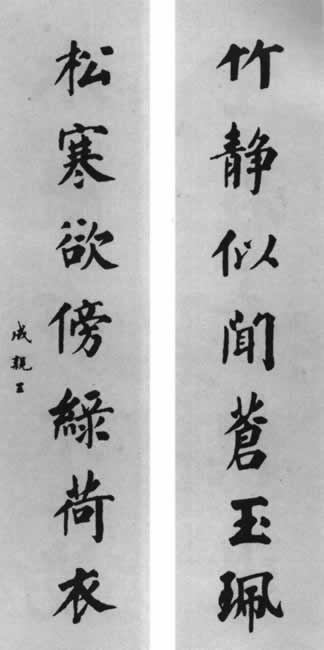 竹静似聞蒼玉珮
松寒欲傍綠荷衣
成親王